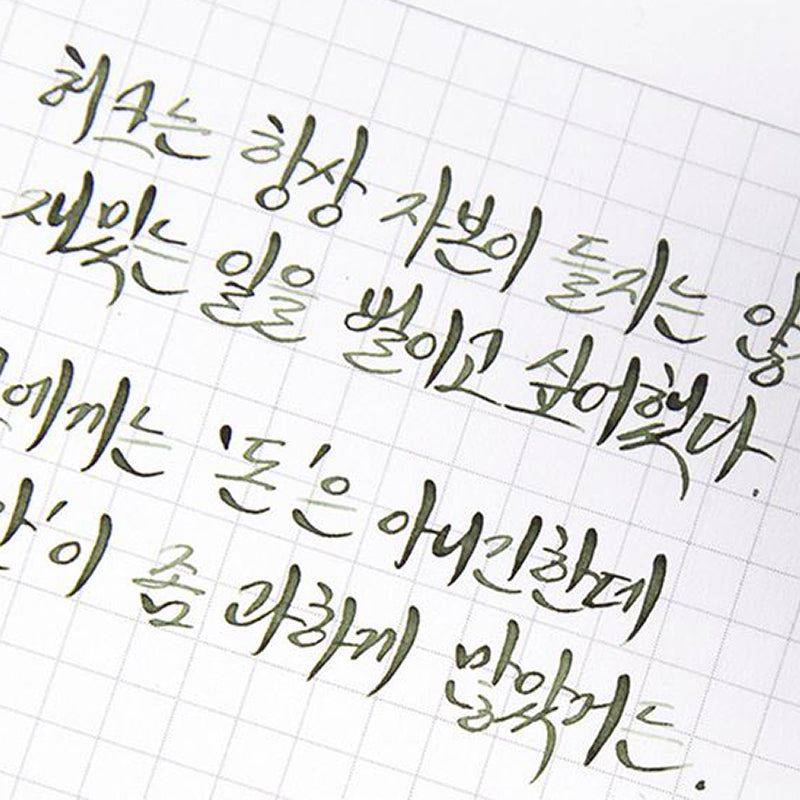 허크는 항상 자본이 들지는 않
재밌는 일을 벌이고 싶어했다.
에게는 '돈'은 아니긴한데
이 좀 과하게 많았거든.